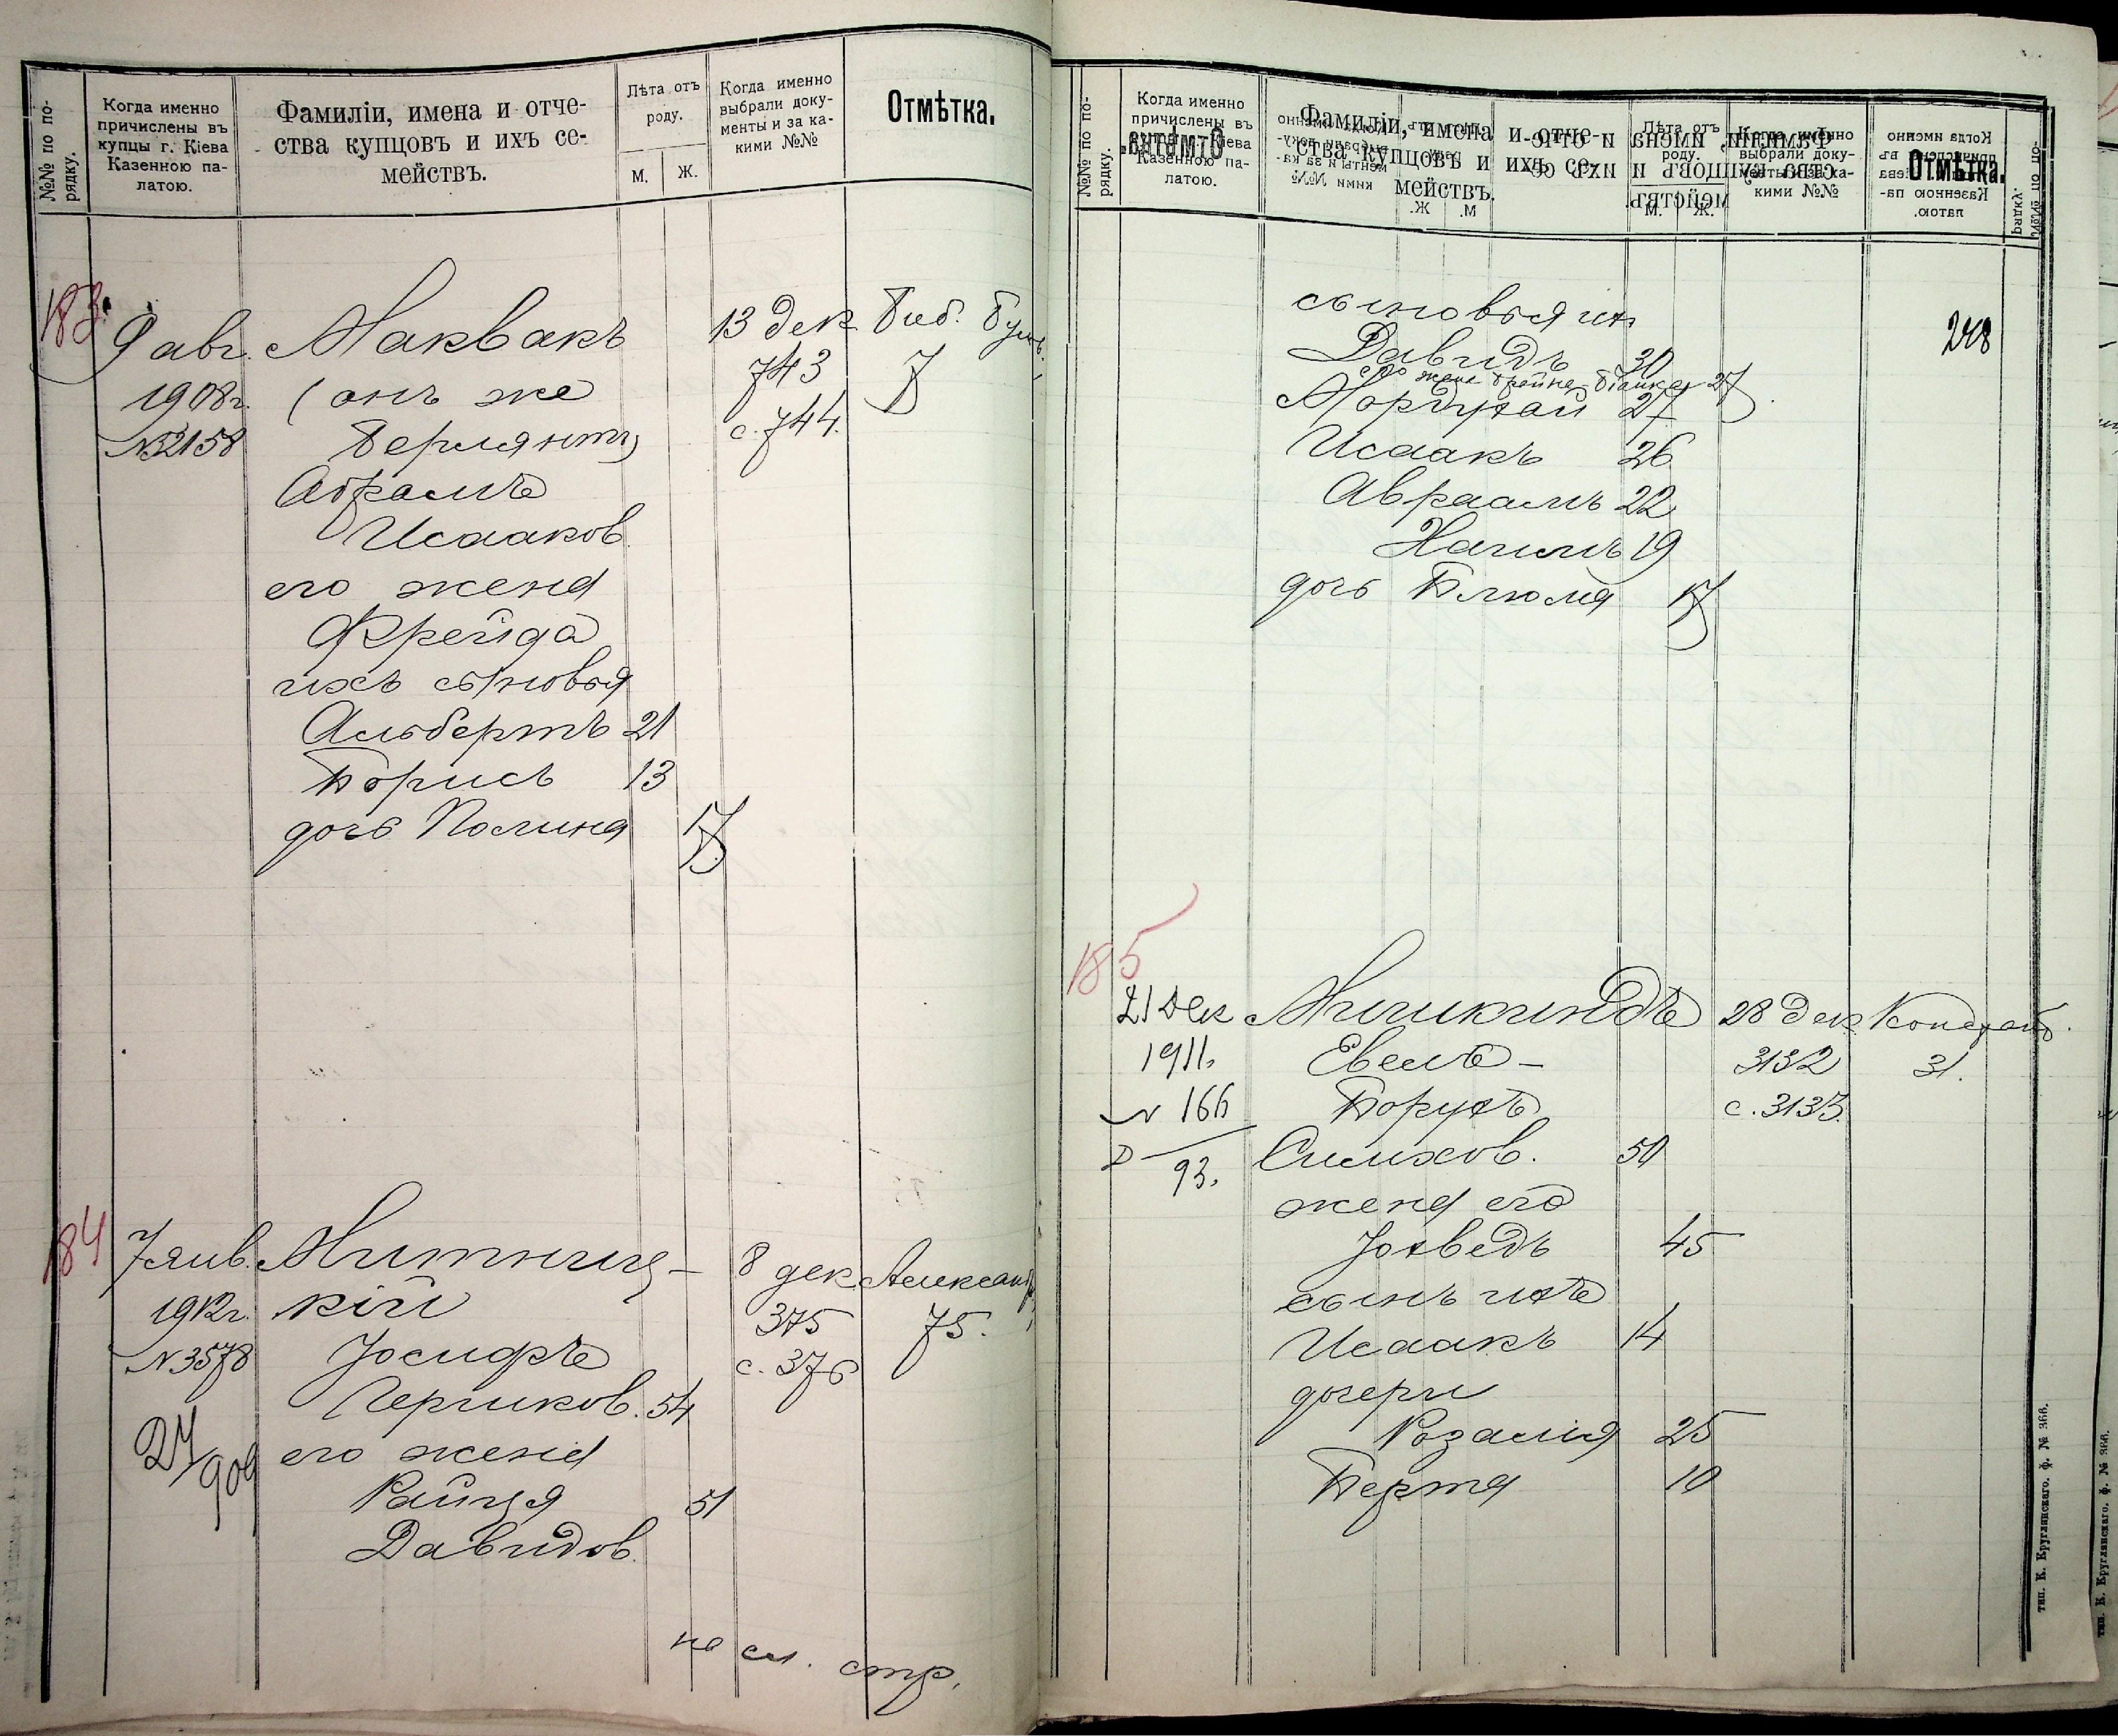 №№ по порядку.
Когда именно
причислены въ
купцы г. Кіева
Казенною па-
латою.
Фамиліи, имена и отче-
ства купцовъ и ихъ се-
мействъ.
Лѣта отъ
роду.
м. ж.
Когда именно
выбрали доку-
менты и за ка-
кими №№
Отмѣтка.
183.
9 авг.
1908г.
№32158
Маквакъ
(онъ же
Берлянтъ)
Абрамъ
Исааков.
его жена
Фрейда
ихъ сыновья
Альбертъ 21
Борисъ 13
дочь Полина 17
13 дек
743
с. 744.
Биб. Бул.
7
184
7 янв.
1912г.
№3578
24/909
Митниц-
кій
Іосифъ
Гершков. 54
его жена
Райця 51
Давидов.
8 дек
375
с. 376
Александр.
75.
на сл. стр.
№№ по порядку.
Когда именно
причислены въ
купцы г. Кіева
Казенною па-
латою.
Фамиліи, имена и отче-
ства купцовъ и ихъ се-
мействъ.
Лѣта отъ
роду.
м. ж.
Когда именно
выбрали доку-
менты и за ка-
кими №№
Отмѣтка.
248
сыновья их
Давидъ 30
его жена Брейна-Бianка 27
Мордухай 27
Исаакъ 26
Авраамъ 22
Нахимъ 19
дочь Блюма 17
185
21 Дек
1911.
№ 166
Д 93.
Мишкиндъ
Евель-
Борухъ
Симхов. 50
жена его
Іохведъ 45
сынъ ихъ
Исаакъ 14
дочери
Розалія 25
Берта 10
28 дек
3132
с. 3133.
Кондрат.
31.
тип. К. Круглянскаго. ф. № 366.
тип. К. Круглянскаго. ф. № 366.